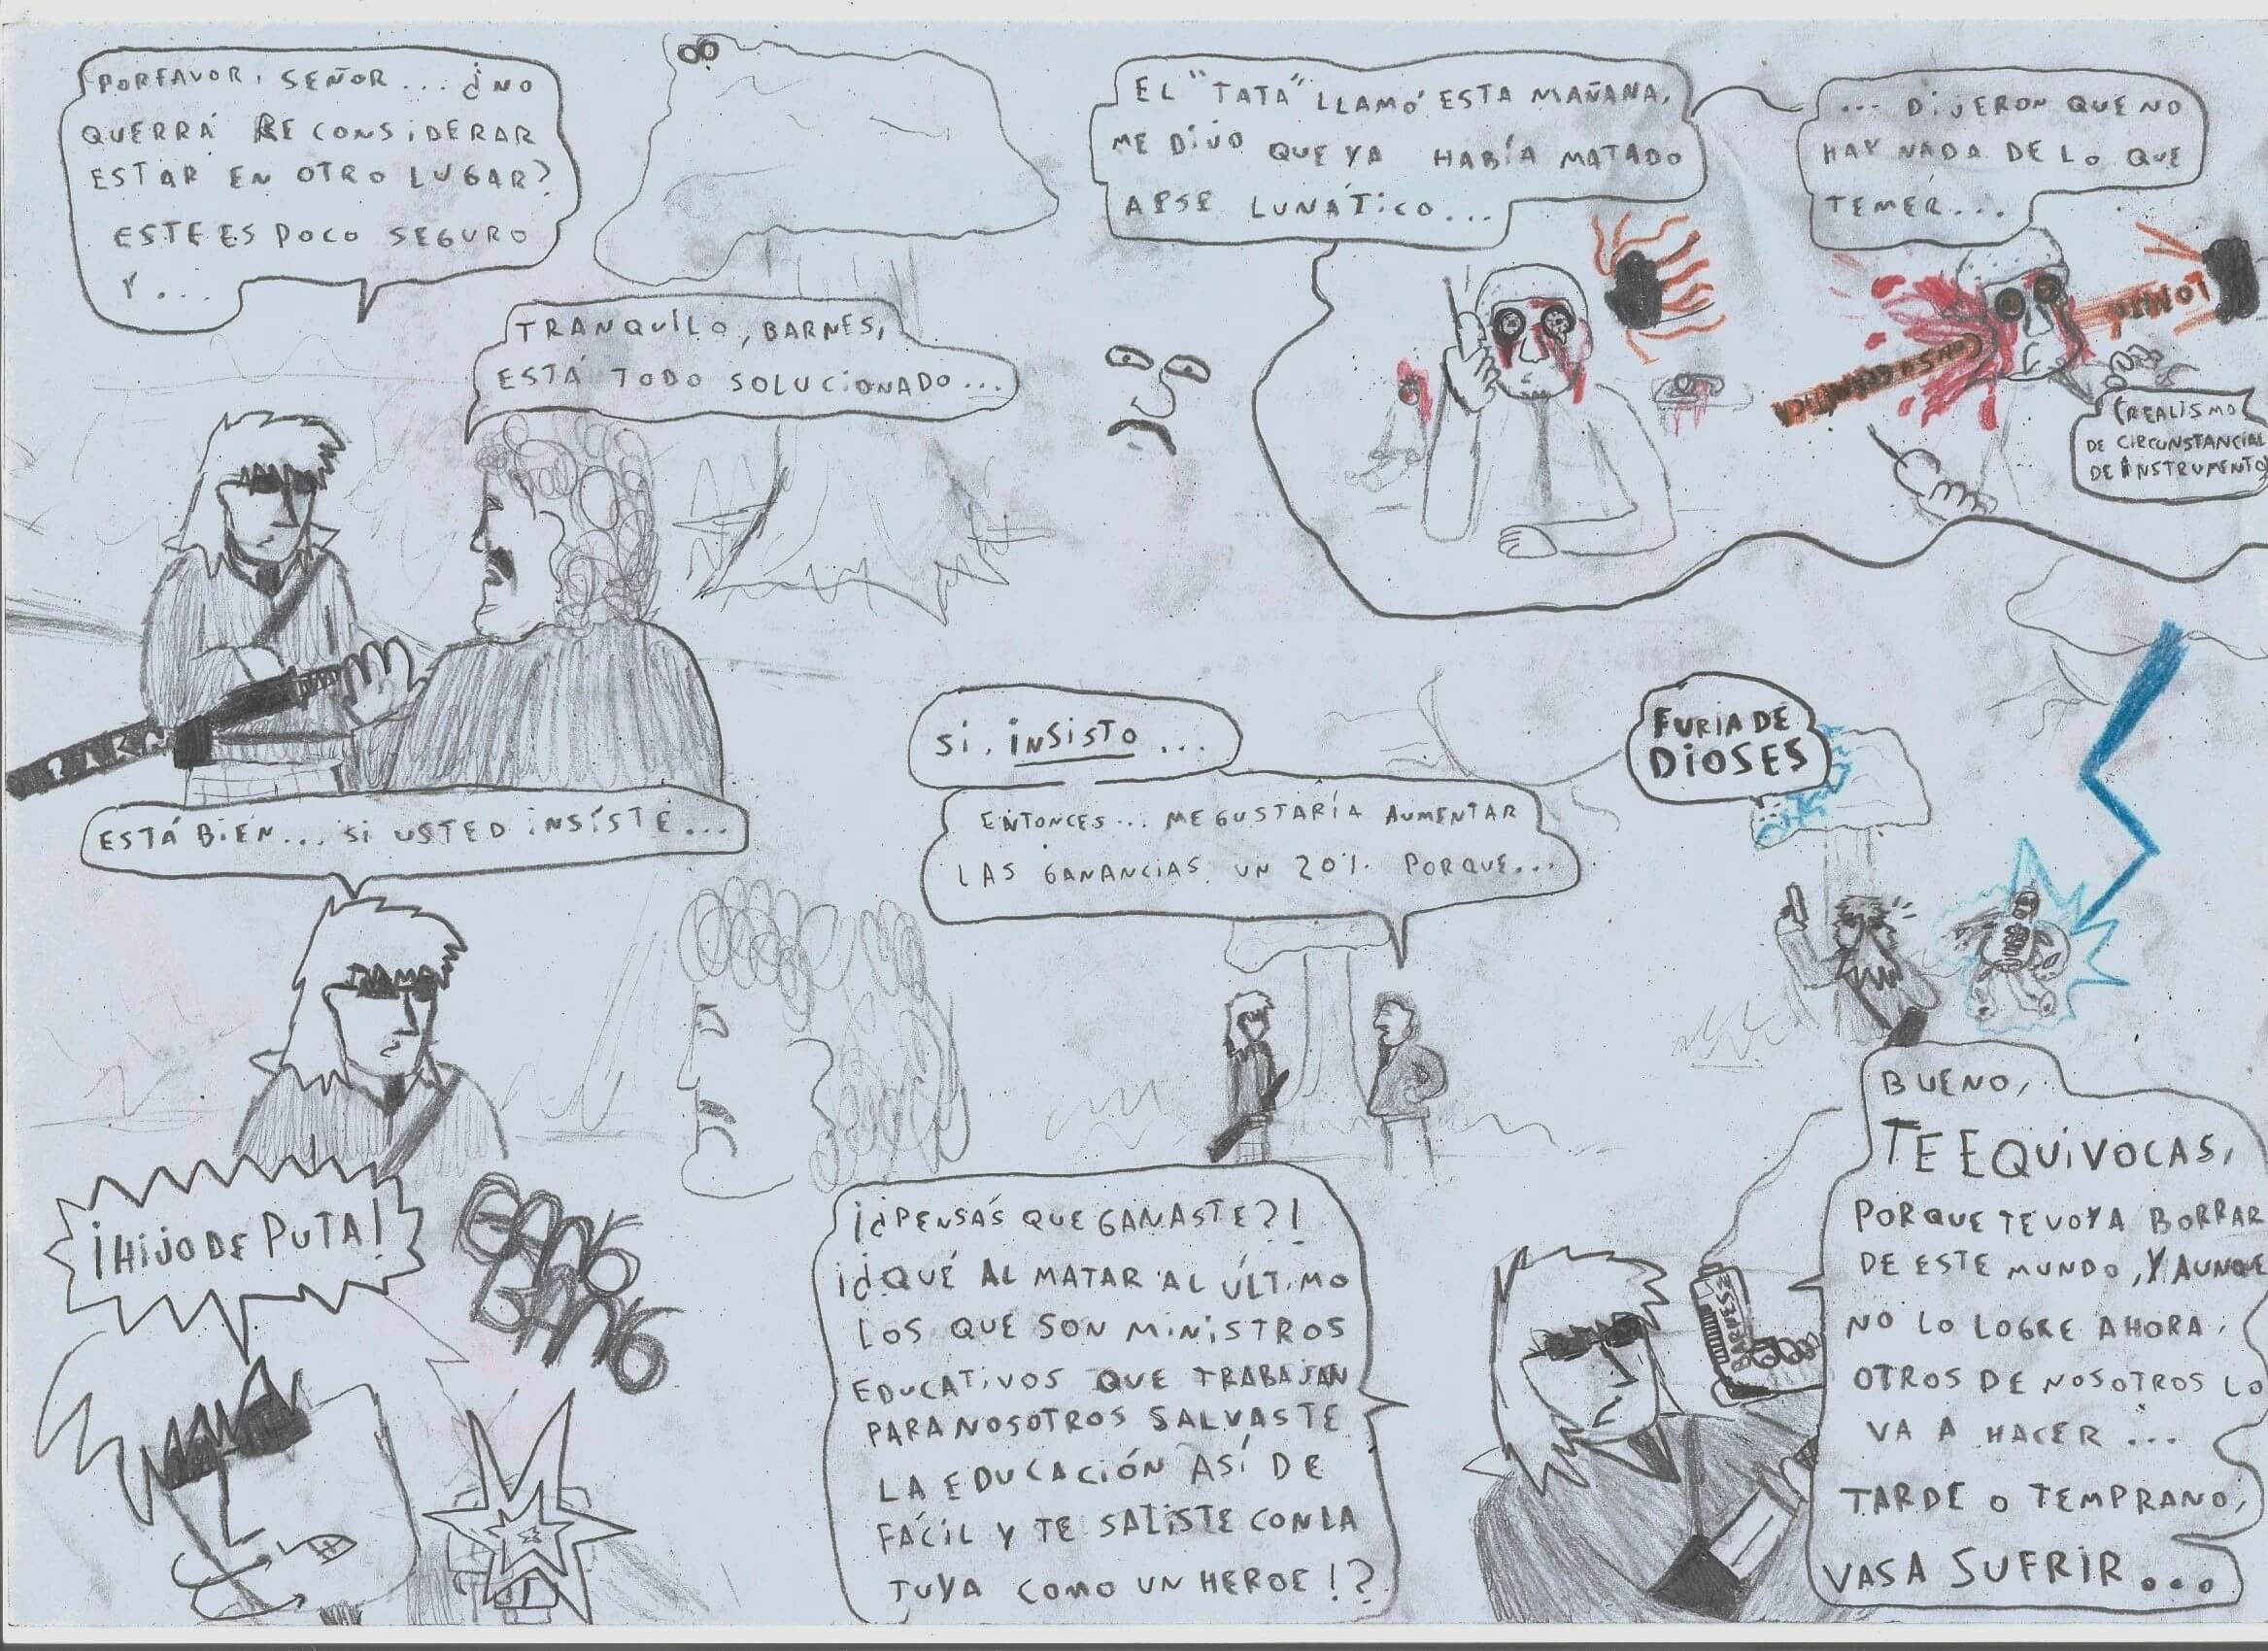 PORFAVOR, SEÑOR... ¿NO
QUERRÁ RECONSIDERAR
ESTAR EN OTRO LUGAR?
ESTE ES POCO SEGURO
Y...
TRANQUÍLO, BARNES,
ESTÁ TODO SOLUCIONADO...
EL "TATA" LLAMÓ ESTA MAÑANA,
ME DIJO QUE YA HABÍA MATADO
A ESE LUNÁTICO...
... DIJERON QUE NO
HAY NADA DE LO QUE
TEMER...
(REALISMO
DE CIRCUNSTANCIAL
DE INSTRUMENTO)
ESTÁ BIEN... SI USTED INSÍSTE...
SI, INSISTO...
ENTONCES... ME GUSTARÍA AUMENTAR
LAS GANANCIAS UN 20% PORQUE...
FURIA DE
DIOSES
¡HIJO DE PUTA!
BANG
BANG
¡¿PENSÁS QUE GANASTE?!
¡¿QUÉ AL MATAR AL ÚLTIMO
LOS QUE SON MINISTROS
EDUCATIVOS QUE TRABAJAN
PARA NOSOTROS SALVASTE
LA EDUCACIÓN ASÍ DE
FÁCIL Y TE SALISTE CON LA
TUYA COMO UN HEROE!?
BUENO,
TE EQUIVOCAS,
PORQUE TE VOY A BORRAR
DE ESTE MUNDO, Y AUNQUE
NO LO LOGRE AHORA,
OTROS DE NOSOTROS LO
VA A HACER...
TARDE O TEMPRANO,
VAS A SUFRIR...